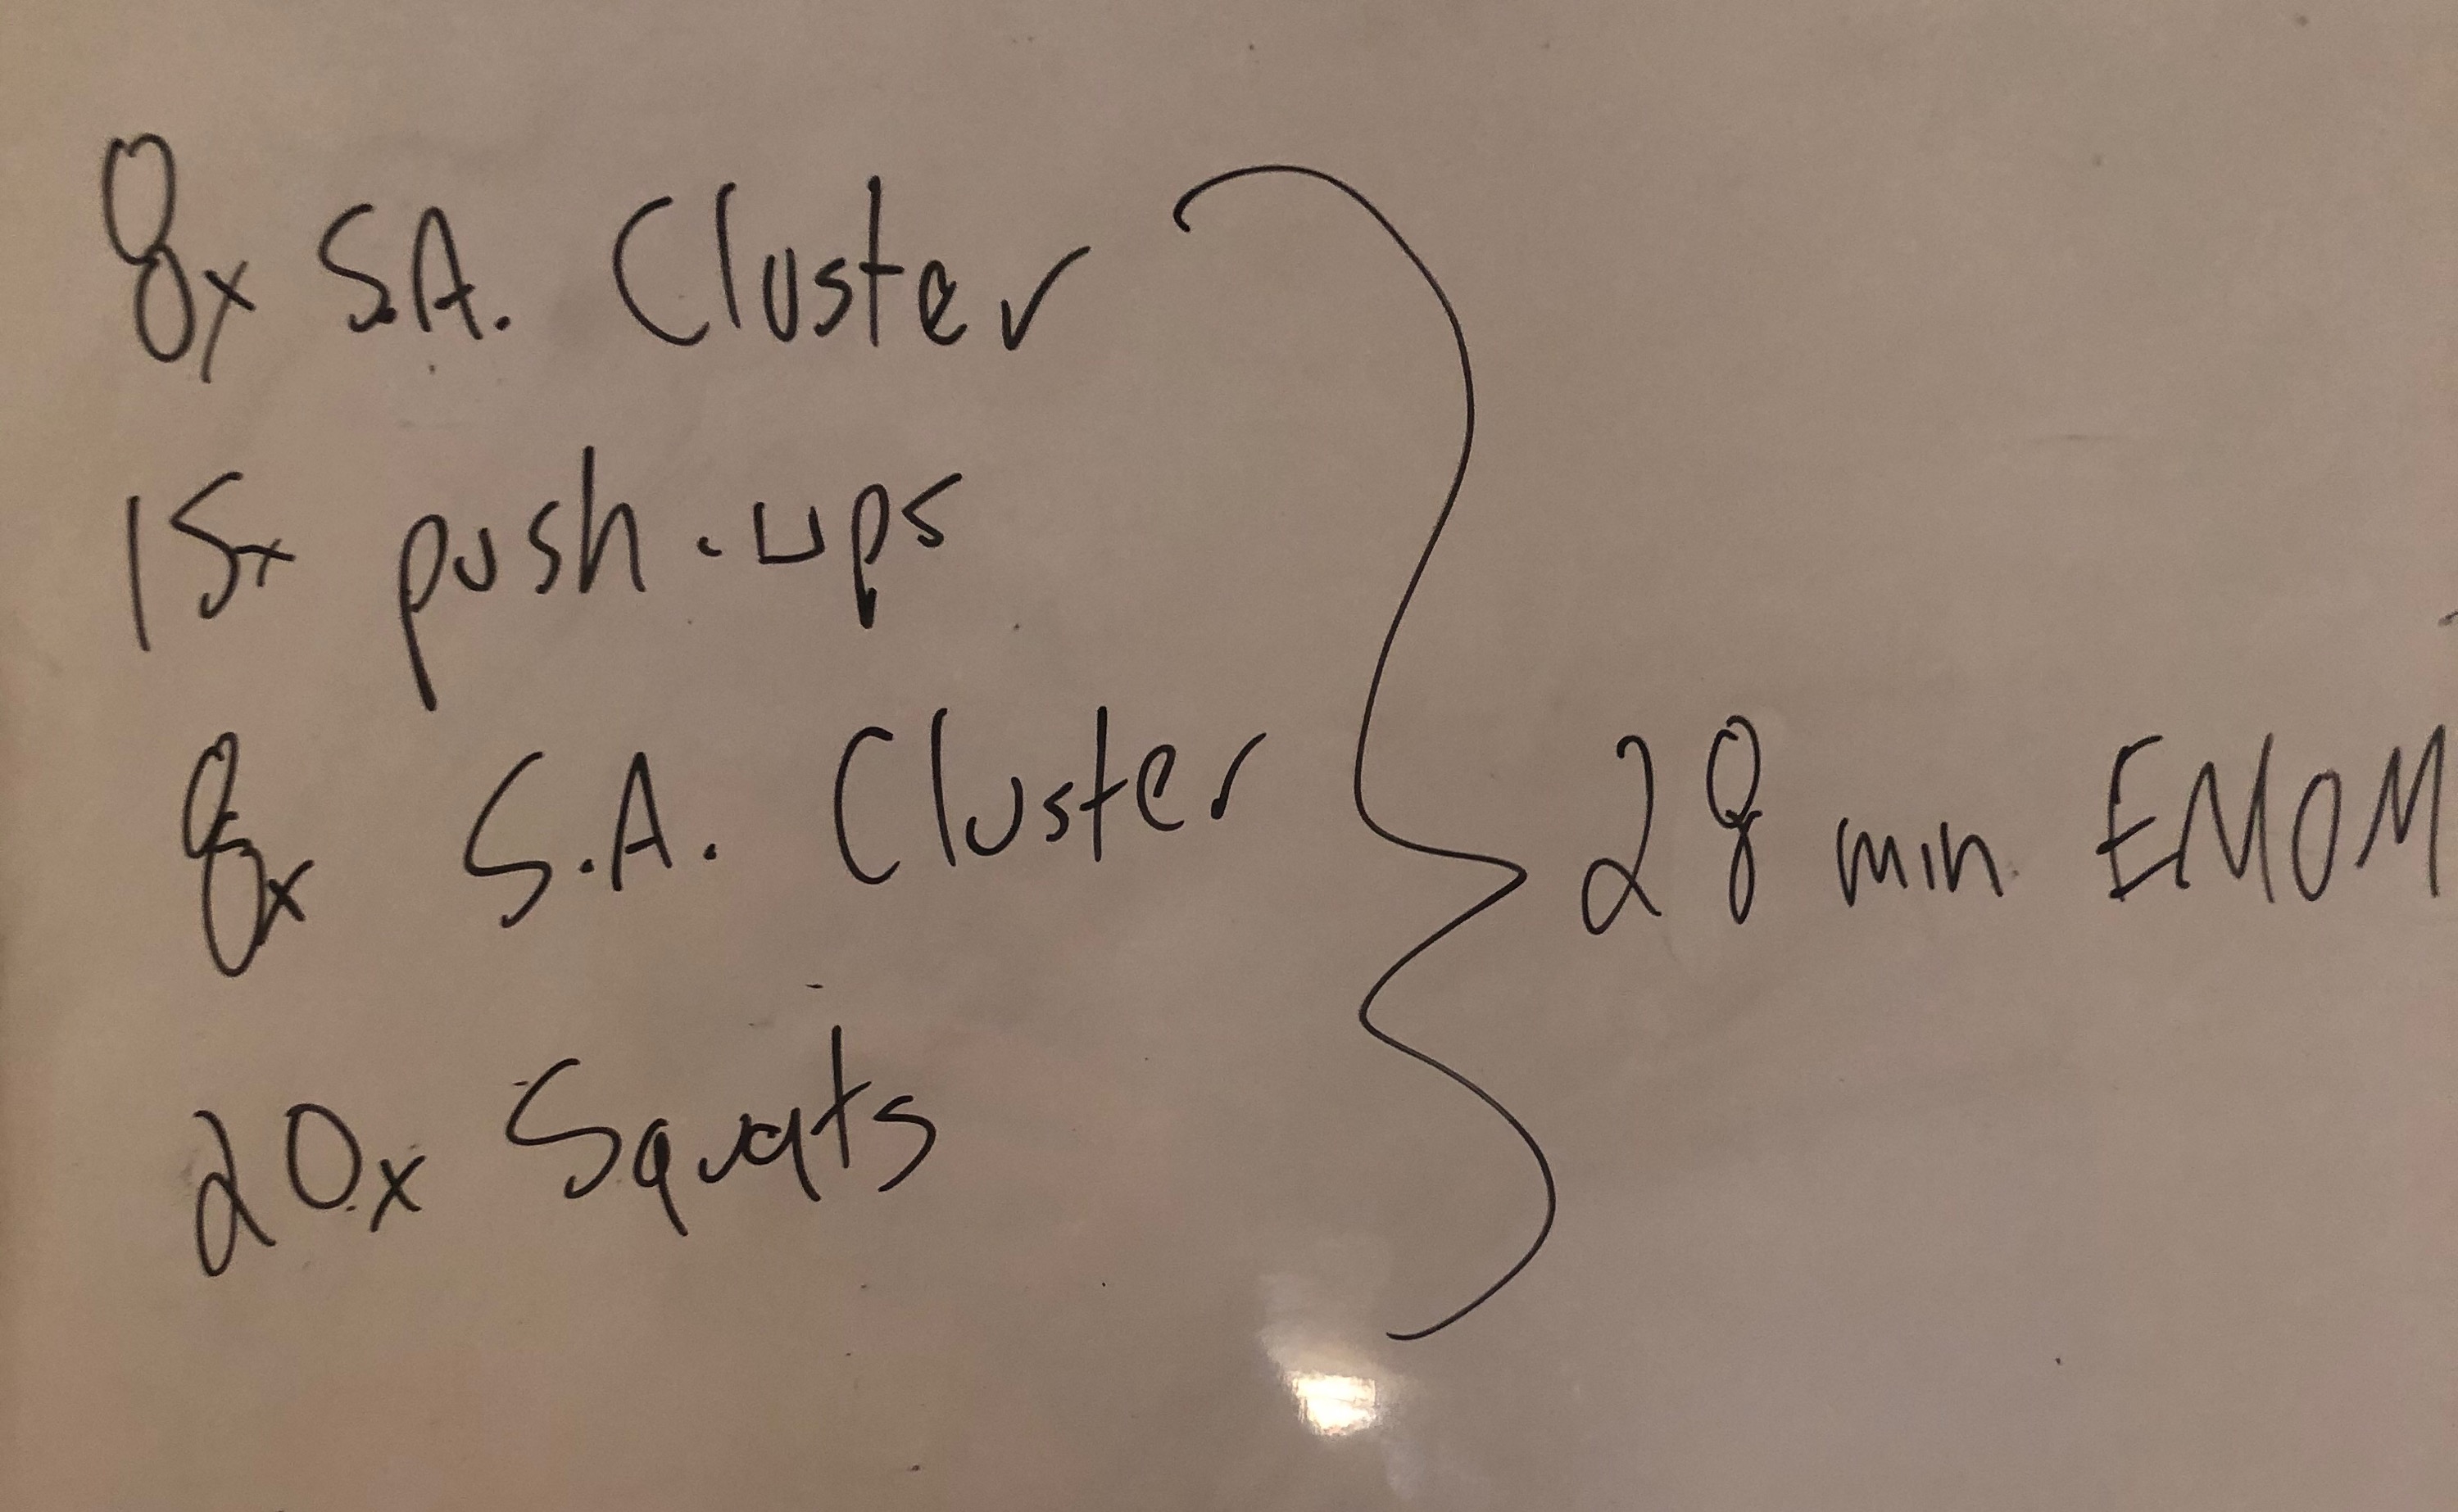 8x S.A. Cluster
15x push-ups
8x S.A. Cluster
20x Squats
28 min EMOM